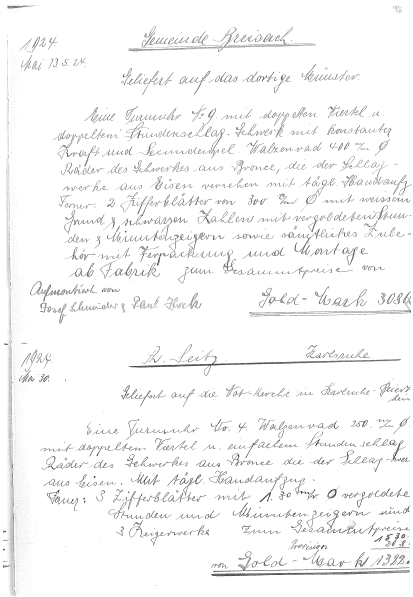 1924
Gemeinde Breisach.
Mai 13.5.24.
Geliefert auf das dortige Münster.
Eine Turmuhr No 9. mit doppelten Viertel u.
doppeltem Stundenschlag. Gehwerk mit konstanter
Kraft und Secundenpel Walzenrad 400 m/m Ø
Räder des Gehwerkes aus Bronce, die der Schlag-
werke aus Eisen versehen mit tägl. Handaufz
Ferner. 2 Zifferblätter von 300 m Ø mit weissem
Grund & schwarzen Zahlen mit vergoldeten Stun-
den & Minutenzeigern sowie sämtliches Zube-
hör mit Verpackung und Montage
ab Fabrik zum Gesammtpreise von
Aufmontiert von
Josef Schneider & Paul
Gold-Mark 308
1924
R. Seitz. Karlsruhe
Mai 30.
Geliefert auf die Not-Kirche in Karlsruhe-
Eine Turmuhr No. 4 Walzenrad 250 m/m Ø
mit doppeltem Viertel u. einfachem Stundenschlag
Räder des Gehwerkes aus Bronce die der Schlag-
aus Eisen. Mit tägl. Handaufzug.
3 Zifferblätter mit 1.30 m/r Ø vergoldete
Stunden und Minutenzeigern sind
3 Zeigerwerke zum Gesamtpreise
Provision 1530.
von Gold-Mark 1392.